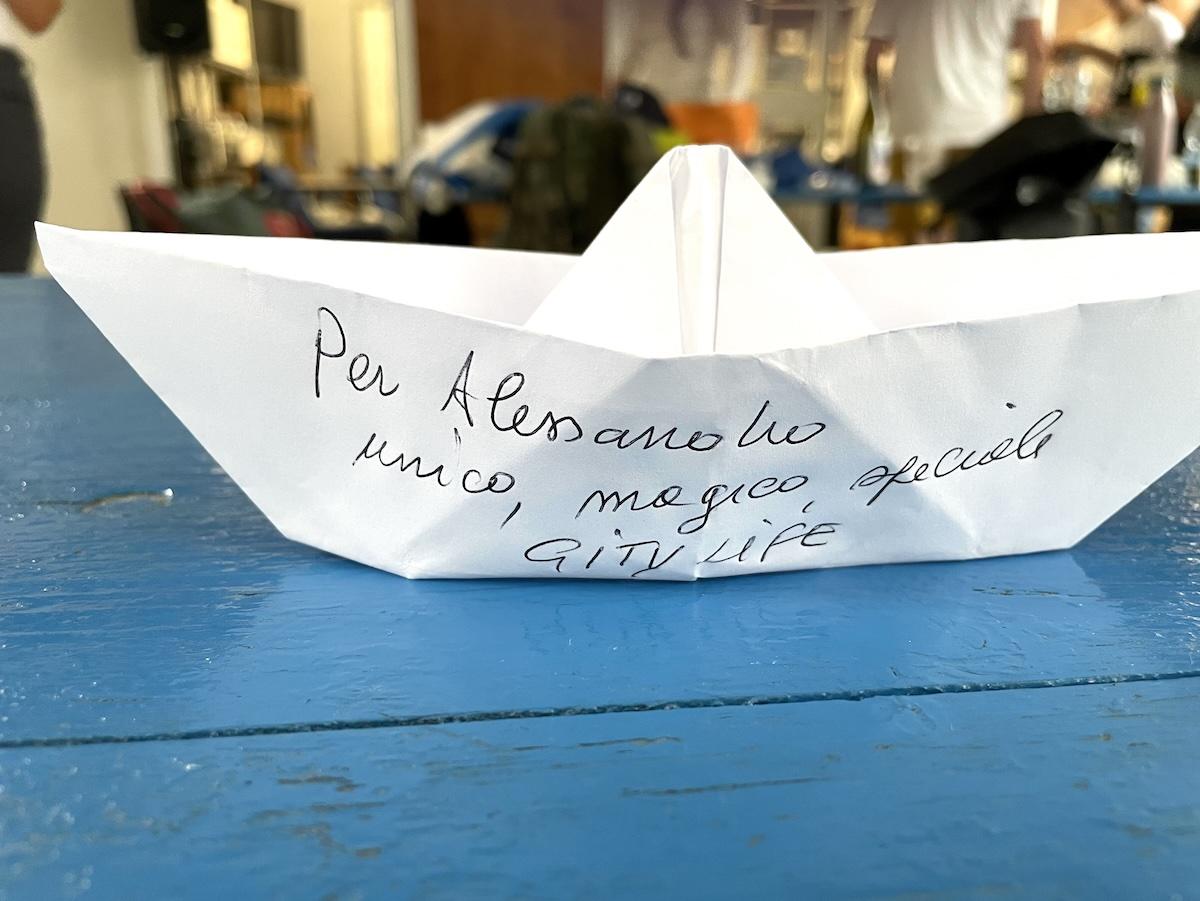 Per Alessandro
unico, magico, speciale
CITY LIFE